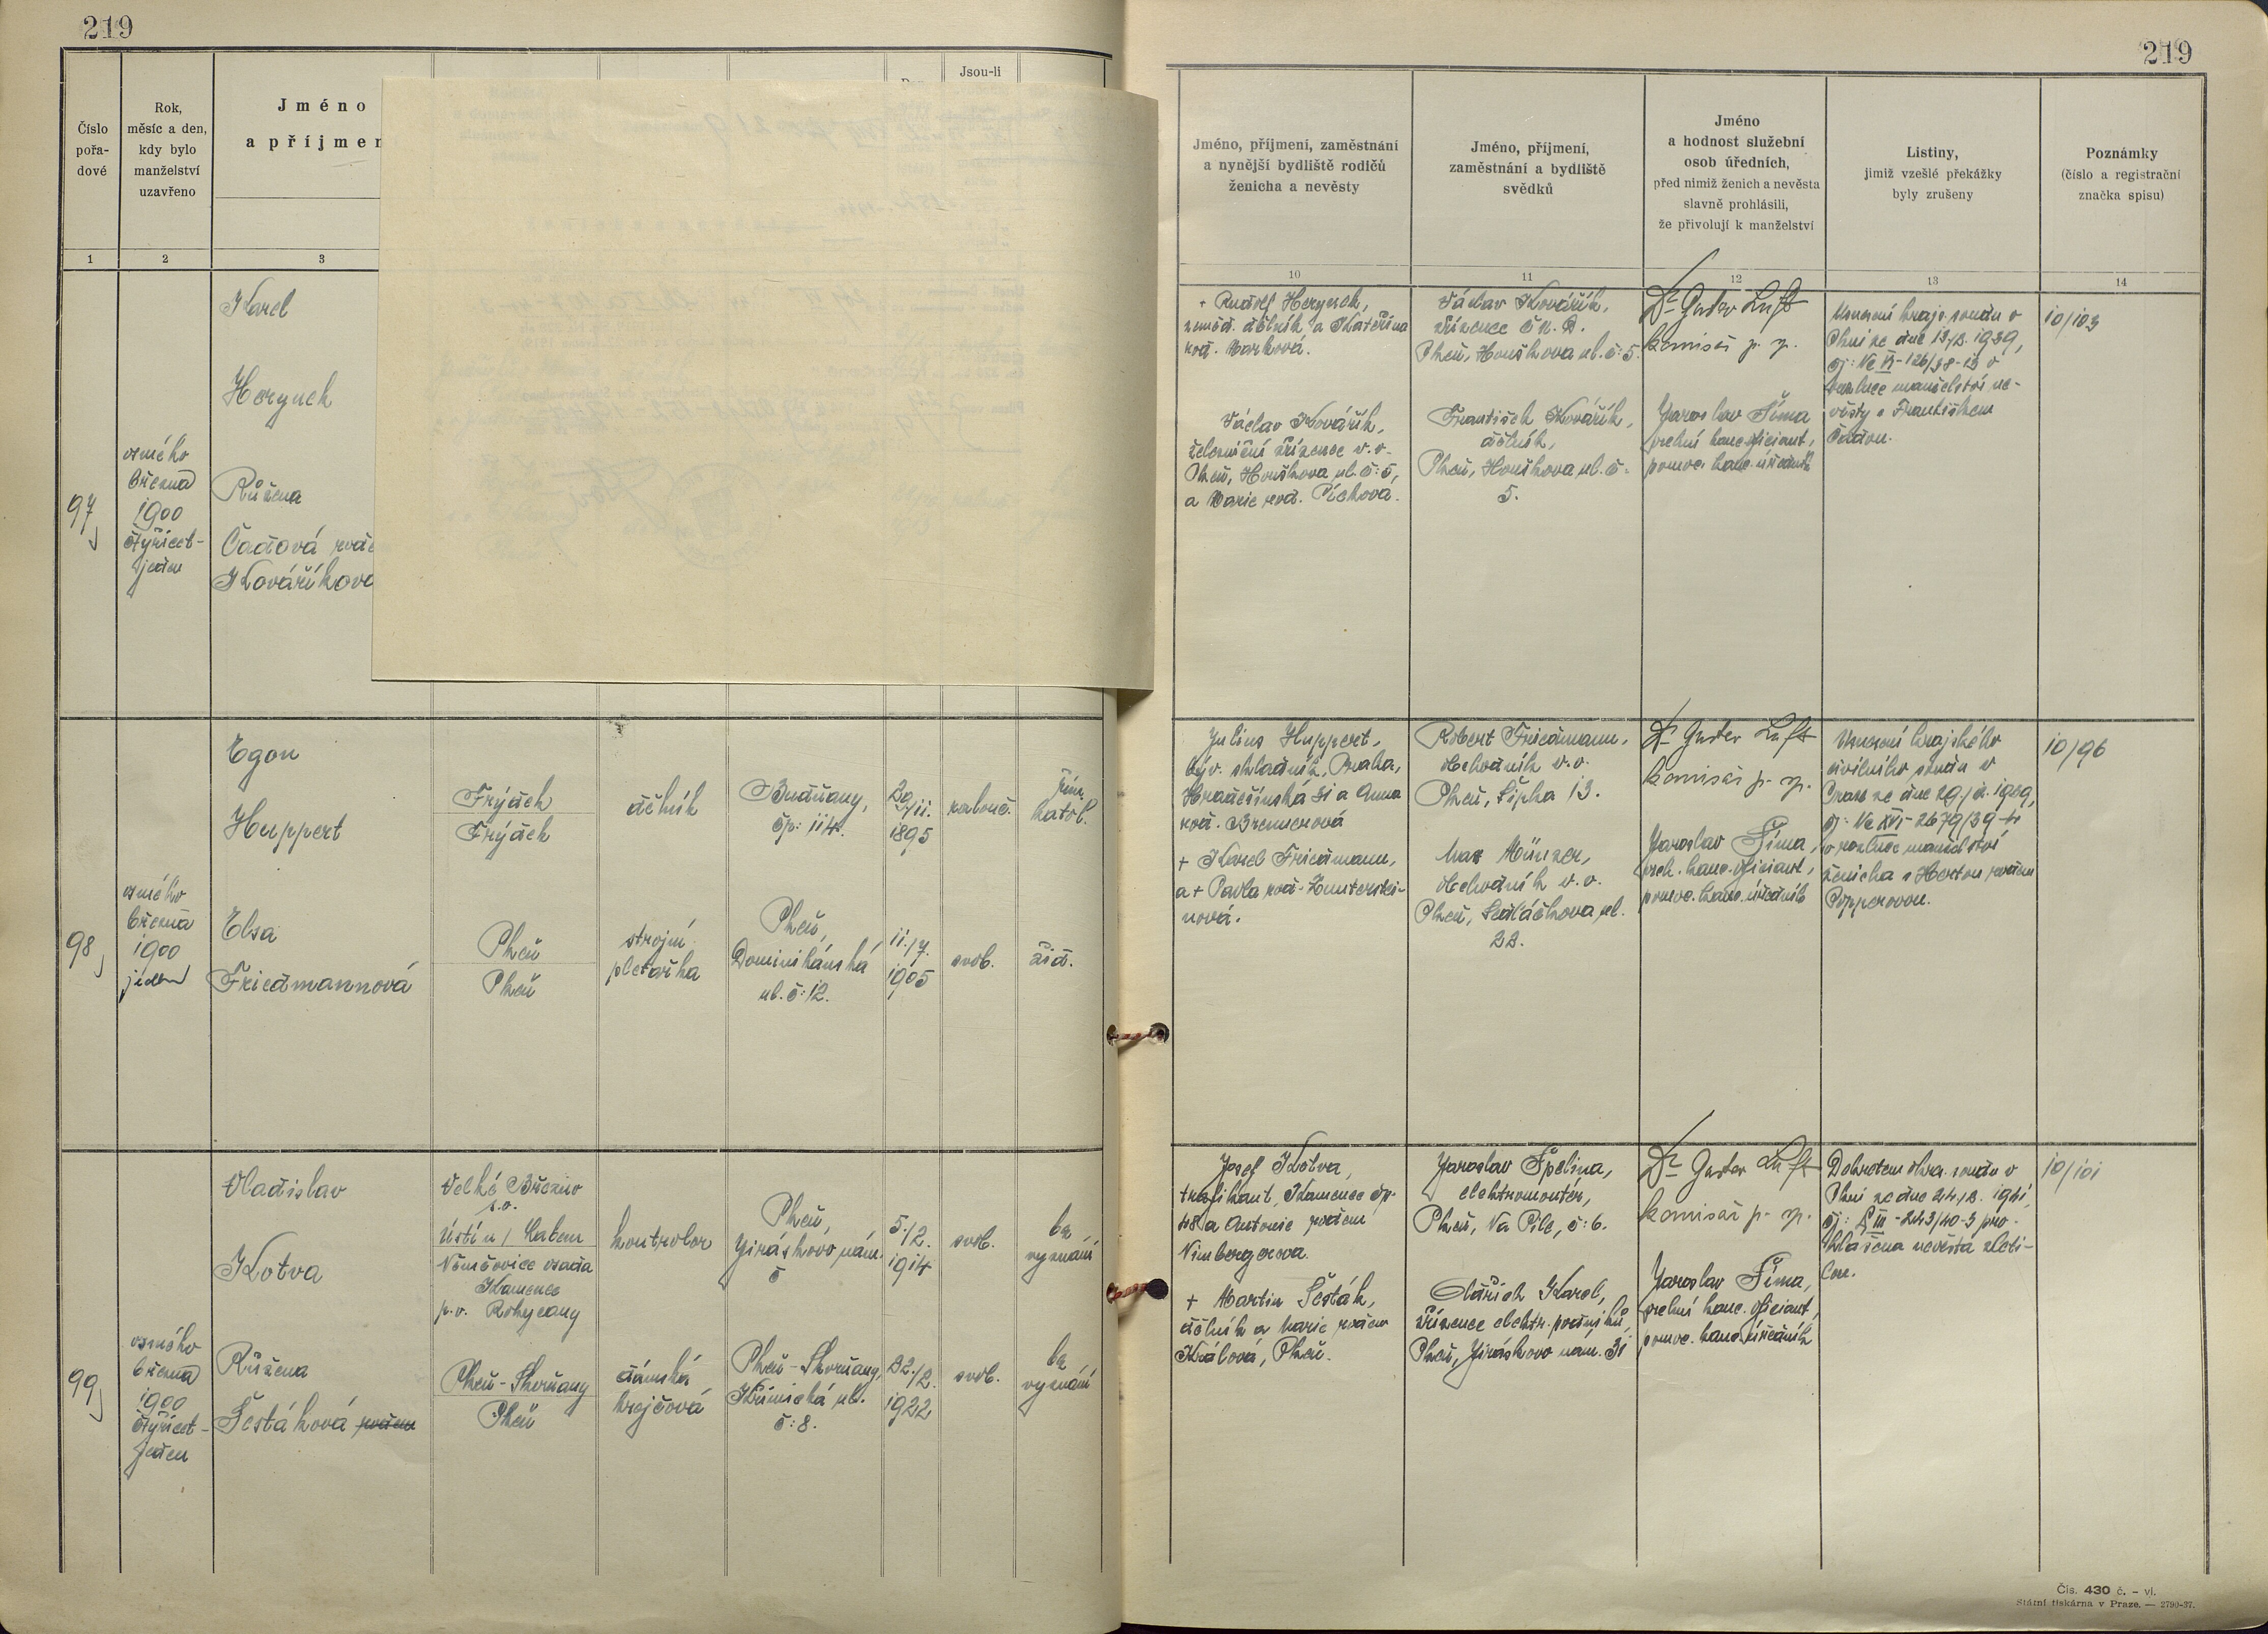 219
219
Číslo
pořa-
dové
Rok,
měsíc a den,
kdy bylo
manželství
uzavřeno
Jméno
a příjmen
Jsou-li
1
2
3
97
osmého
března
1900
čtyřicet-
jeden
Karel
Herynek
Růžena
Čadová
Kovářikova
98
osmého
března
1900
jeden
Egon
Huppert
Frýdek
Frýdek
dělník
Budňany,
čp: 114.
29./11.
1895
rozlouč.
řím.
katol.
Elsa
Friedmannová
Plzeň
Plzeň
strojní
pletařka
Plzeň,
Dominikánská
ul. č: 12.
11./7.
1905
svob.
žid.
99
osmého
března
1900
čtyřicet-
jeden
Vladislav
Kotva
Velké Březno
s.o.
Ústí n/Labem
Němčovice osada
Kamenec
p.o. Rokycany
kontrolor
Plzeň,
Jiráskovo nám.
5./2.
1914
svob.
bez
vyznání
Růžena
Šestáková rodem
Plzeň-Skvrňany
Plzeň
dámská
krejčová
Plzeň-Skvrňany,
Křimická ul.
č: 8.
22./2.
1922
svob.
bez
vyznání
Jméno, příjmení, zaměstnání
a nynější bydliště rodičů
ženicha a nevěsty
Jméno, příjmení,
zaměstnání a bydliště
svědků
Jméno
a hodnost služební
osob úředních,
před nimiž ženich a nevěsta
slavně prohlásili,
že přivolují k manželství
Listiny,
jimiž vzešlé překážky
byly zrušeny
Poznámky
(číslo a registrační
značka spisu)
10
11
12
13
14
+ Rudolf Herynek,
zeměd. dělník a Kateřina
rod. Marková.
Václav Kovářík,
železniční zřízenec v.v.
Plzeň, Houškova ul. č: 5,
a Marie rod. Píchová.
Václav Kovářík,
zřízenec
Plzeň, Houškova ul. č: 5.
František Kovářík,
dělník,
Plzeň, Houškova ul. č.
5.
Dr Gustav Luft
komisař p. s.
Jaroslav Šíma
vrchní kanc. oficiant,
pomoc. kanc. úředník
Usnesení kraj. soudu v
Plzni ze dne 13./2. 1939,
čj: Nc VI-126/38-13 o
rozluce manželství ne-
věsty s Františkem
Čadou.
10/103
Julius Huppert,
býv. skladník, Praha,
Hradešínská 31 a Anna
rod. Bremerová
+ Karel Friedmann,
a + Pavla rod.
nová.
Robert Friedmann,
obchodník v.v.
Plzeň, Šipka 13.
Max Münzer,
obchodník v.v.
Plzeň, Sedláčkova ul.
22.
Dr Gustav Luft
komisař p. s.
Jaroslav Šíma,
vrch. kanc. oficiant,
pomoc. kanc. úředník
Usnesení krajského
civilního soudu v
Praze ze dne 29./ 1939,
čj: Nc XVI-2679/39-4
o rozluce manželství
ženicha s Hertou rodem
Popperovou.
10/96
Josef Kotva,
trafikant, Kamenec čp.
48 a Antonie rodem
Nimbergerova.
+ Martin Šesták,
dělník a Marie rodem
Králová, Plzeň.
Jaroslav Špelina,
elektromontér,
Plzeň, Na Pile, č: 6.
Oldřich Karel,
zřízenec elektr. podniků,
Plzeň, Jiráskovo nám. 31
Dr Gustav Luft
komisař p. s.
Jaroslav Šíma,
vrchní kanc. oficiant,
pomoc. kanc. úředník
Dekretem okres. soudu v
Plzni ze dne 24./2. 1941,
čj: P III-243/40-3 pro-
hlášena nevěsta zleti-
lou.
10/101
Čís. 430 č. – vl.
Státní tiskárna v Praze. — 2790-37.